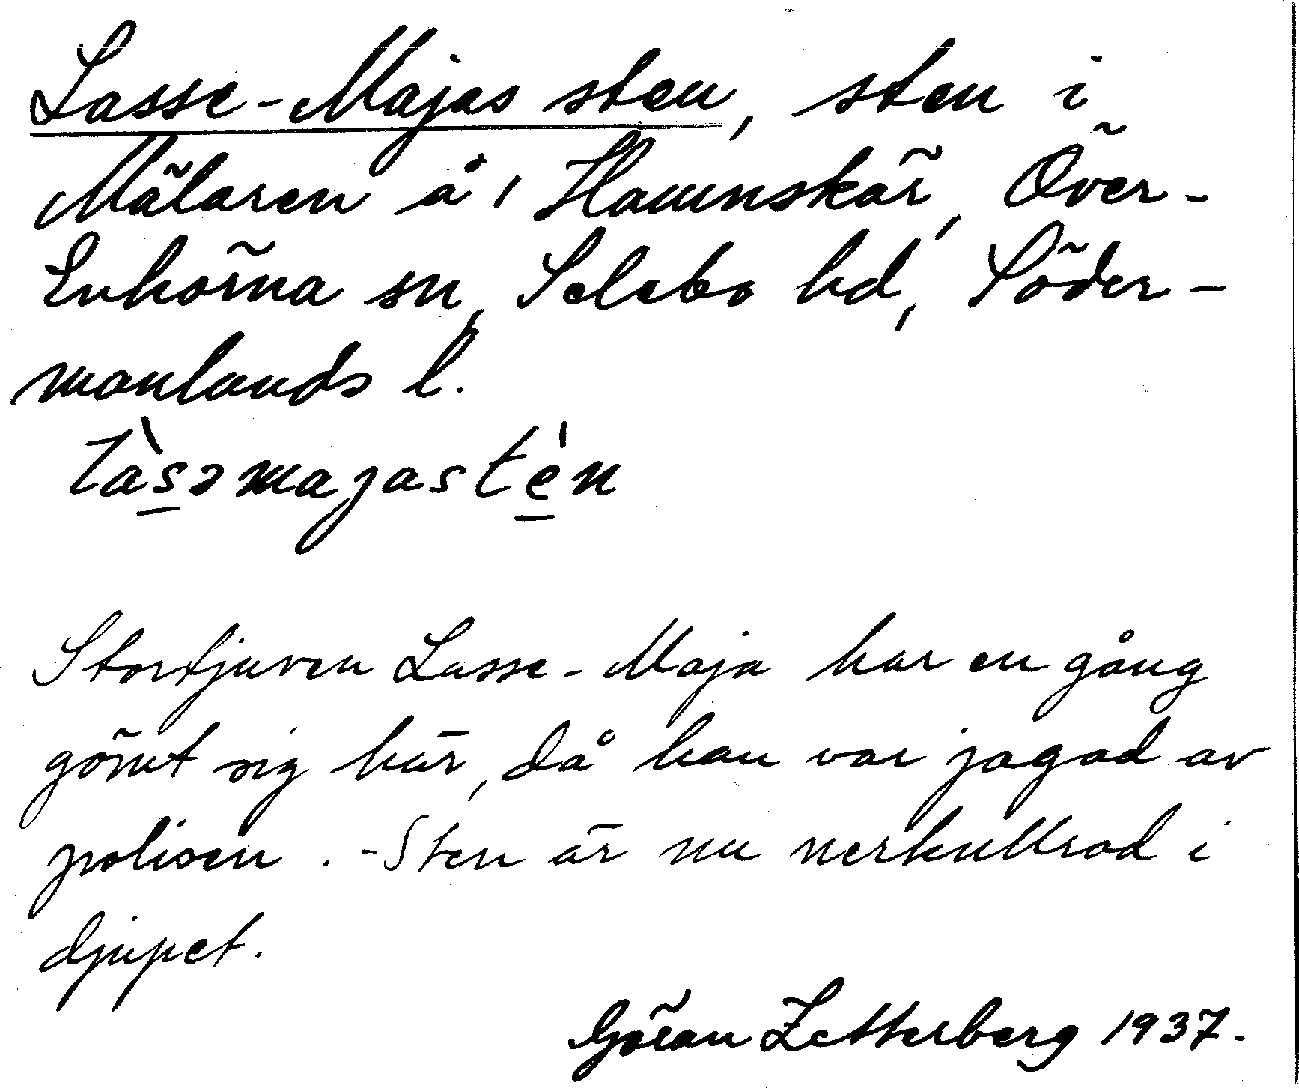 Lasse-Majas sten, sten i
Mälaren å Hamnskär, Över-
Enhörna sn, Selebo hd, Söder-
manlands l.
làsəmajastèn
Stortjuven Lasse-Maja har en gång
gömt sig här, då han var jagad av
polisen. - Sten är nu nerkullrad i
djupet.
Göran Zetterberg 1937.